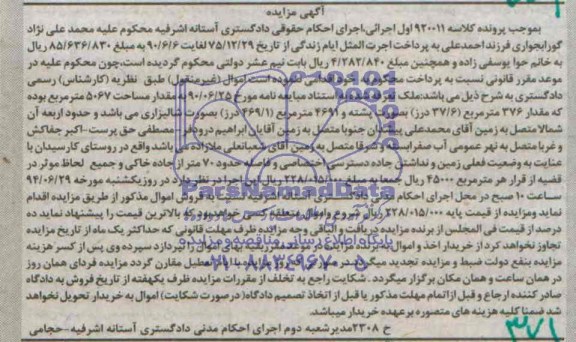 آگهی مزایده
بموجب پرونده کلاسه ۹۲۰۰۱۱ اول اجرائی، اجرای احکام حقوقی دادگستری آستانه اشرفیه محکوم علیه محمد علی نژاد
گورابجواری فرزند احمدعلی به پرداخت اجرت المثل ایام زندگی از تاریخ ۷۵/۱۲/۲۹ لغایت ۹۰/۶/۶ به مبلغ ۸۵/۶۳۶/۸۳۰ ریال
به خانم حوا یوسفی زاده و همچنین مبلغ ۴/۲۸۲/۸۴۰ ریال بابت نیم عشر دولتی محکوم گردیده است، چون محکوم علیه در
موعد مقرر قانونی نسبت به پرداخت محکوم به اموال (غیرمنقول) طبق نظریه (کارشناس) رسمی
دادگستری به شرح ذیل می باشد: ملک استناد مبایعه نامه مورخ ۹۰/۰۶/۲۵ به مقدار مساحت ۵۰۶۷ مترمربع بوده
که مقدار ۳۷۶ مترمربع (۳۷/۶ درز) بصورت پشته و ۴۶۹۱ مترمربع (۴۶۹/۱ درز) بصورت شالیزاری می باشد و حدود اربعه آن
شمالا متصل به زمین آقای محمدعلی جنوبا متصل به زمین آقایان ابراهیم درودگر، مصطفی حق پرست-اکبر جفاکش
و غربا متصل به نهر عمومی آب و شرقا متصل به زمین آقای شعبانعلی باشد واقع در روستای کارسیدان با
عنایت به وضعیت فعلی زمین و نداشتن جاده دسترسی اختصاصی و فاصله حدود ۷۰ متر از جاده خاکی و جمیع لحاظ موثر در
قضیه از قرار هر مترمربع ۴۵۰۰۰ ریال جمعا به مبلغ ۲۲۸/۰۱۵/۰۰۰ ریال این اجرا در نظر دارد در روز یکشنبه مورخه ۹۴/۰۶/۲۹
ساعت ۱۰ صبح در محل اجرای احکام دادگستری آستانه اشرفیه نسبت به فروش اموال مذکور از طریق مزایده اقدام
نماید و مزایده از قیمت پایه ۲۲۸/۰۱۵/۰۰۰ ریال شروع و اموال متعلقه کسی خواهد بود که بالاترین قیمت را پیشنهاد نماید ده
درصد از قیمت فی المجلس از برنده مزایده دریافت و الباقی وجه مزایده ظرف مهلت قانونی که حداکثر یک ماه از تاریخ مزایده
تجاوز نخواهد کرد از خریدار اخذ و اموال سپرده وی پس از کسر هزینه
مزایده بنفع دولت ضبط و مزایده تجدید میگردد تعطیل مقارن گردد مزایده فردای همان روز
در همان ساعت و همان مکان برگزار میگردد. شکایت راجع به تخلف از مقررات مزایده ظرف یکهفته از تاریخ فروش به دادگاه
صادر کننده ارجاع و قبل از اتمام مهلت مذکور یا قبل از اتخاذ تصمیم دادگاه (در صورت شکایت) اموال به خریدار تحویل نخواهد
شد ضمنا کلیه هزینه های متصوره بر عهده خریدار میباشد.
خ ۲۳۰۸ مدیر شعبه دوم اجرای احکام مدنی دادگستری آستانه اشرفیه-حجامی
ParsNamadData
پایگاه اطلاع رسانی مناقصه و مزایده
۰۲۱-۸۸۳۴۹۶۷۰-۵
۳۷۱